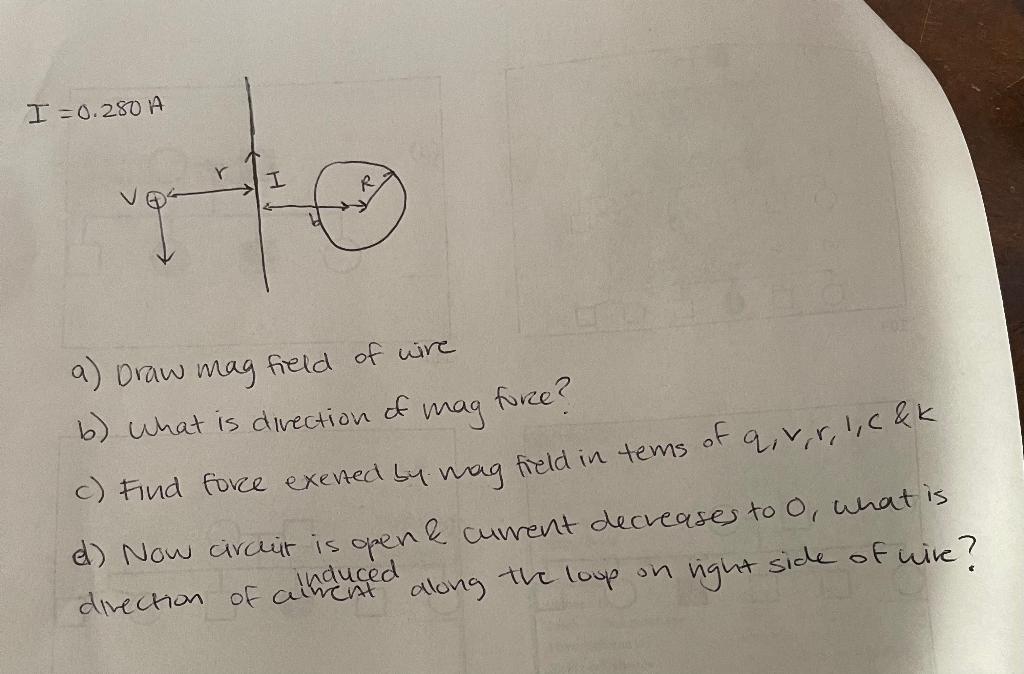 I = 0.280 A
r
I
R
V
b
a) Draw mag field of wire
b) what is direction of mag force?
c) Find force exerted by mag field in tems of q, v, r, I, c & k
d) Now circuit is open & current decreases to 0, what is
induced
direction of current along the loop on right side of wire?